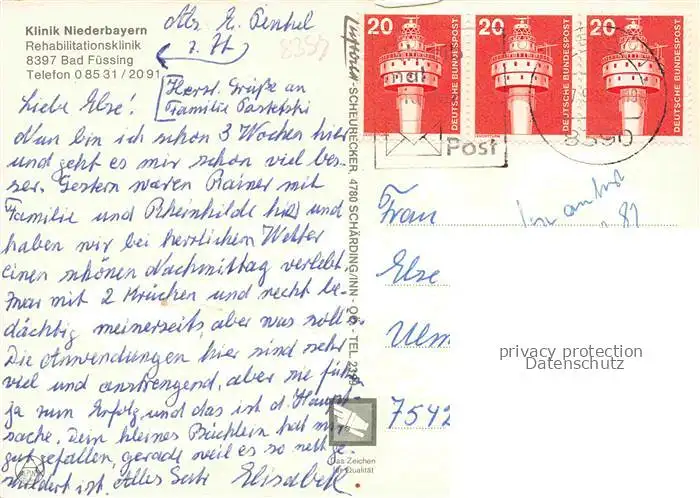 Klinik Niederbayern
Rehabilitationsklinik
8397 Bad Füssing
Telefon 0 85 31 / 20 91
Abs. E. Penkel
z. Zt
8397
Herzl. Grüße an
Familie
Liebe Else!
Nun bin ich schon 3 Wochen hier
und geht es mir schon viel bes-
ser. Gestern waren Rainer mit
Familie und Rheinhilde hier und
haben wir bei herrlichem Wetter
einen schönen Nachmittag verlebt,
zwar mit 2 Krücken und recht be-
dächtig meinerseits, aber was soll's.
Die Anwendungen hier sind sehr
viel und anstrengend, aber sie führ
ja zum Erfolg und das ist d. Haupt-
sache. Dein kleines Büchlein hat mir
gut gefallen, gerade weil es so nett ge-
schildert ist. Alles Gute Elisabeth
-SCHEURECKER, 4780 SCHÄRDING/INN - OÖ - TEL.
Das Zeichen
für Qualität
20
DEUTSCHE BUNDESPOST
20
DEUTSCHE BUNDESPOST
20
DEUTSCHE BUNDESPOST
Post
8390
Frau
Else
Ulm
7542
privacy protection
Datenschutz